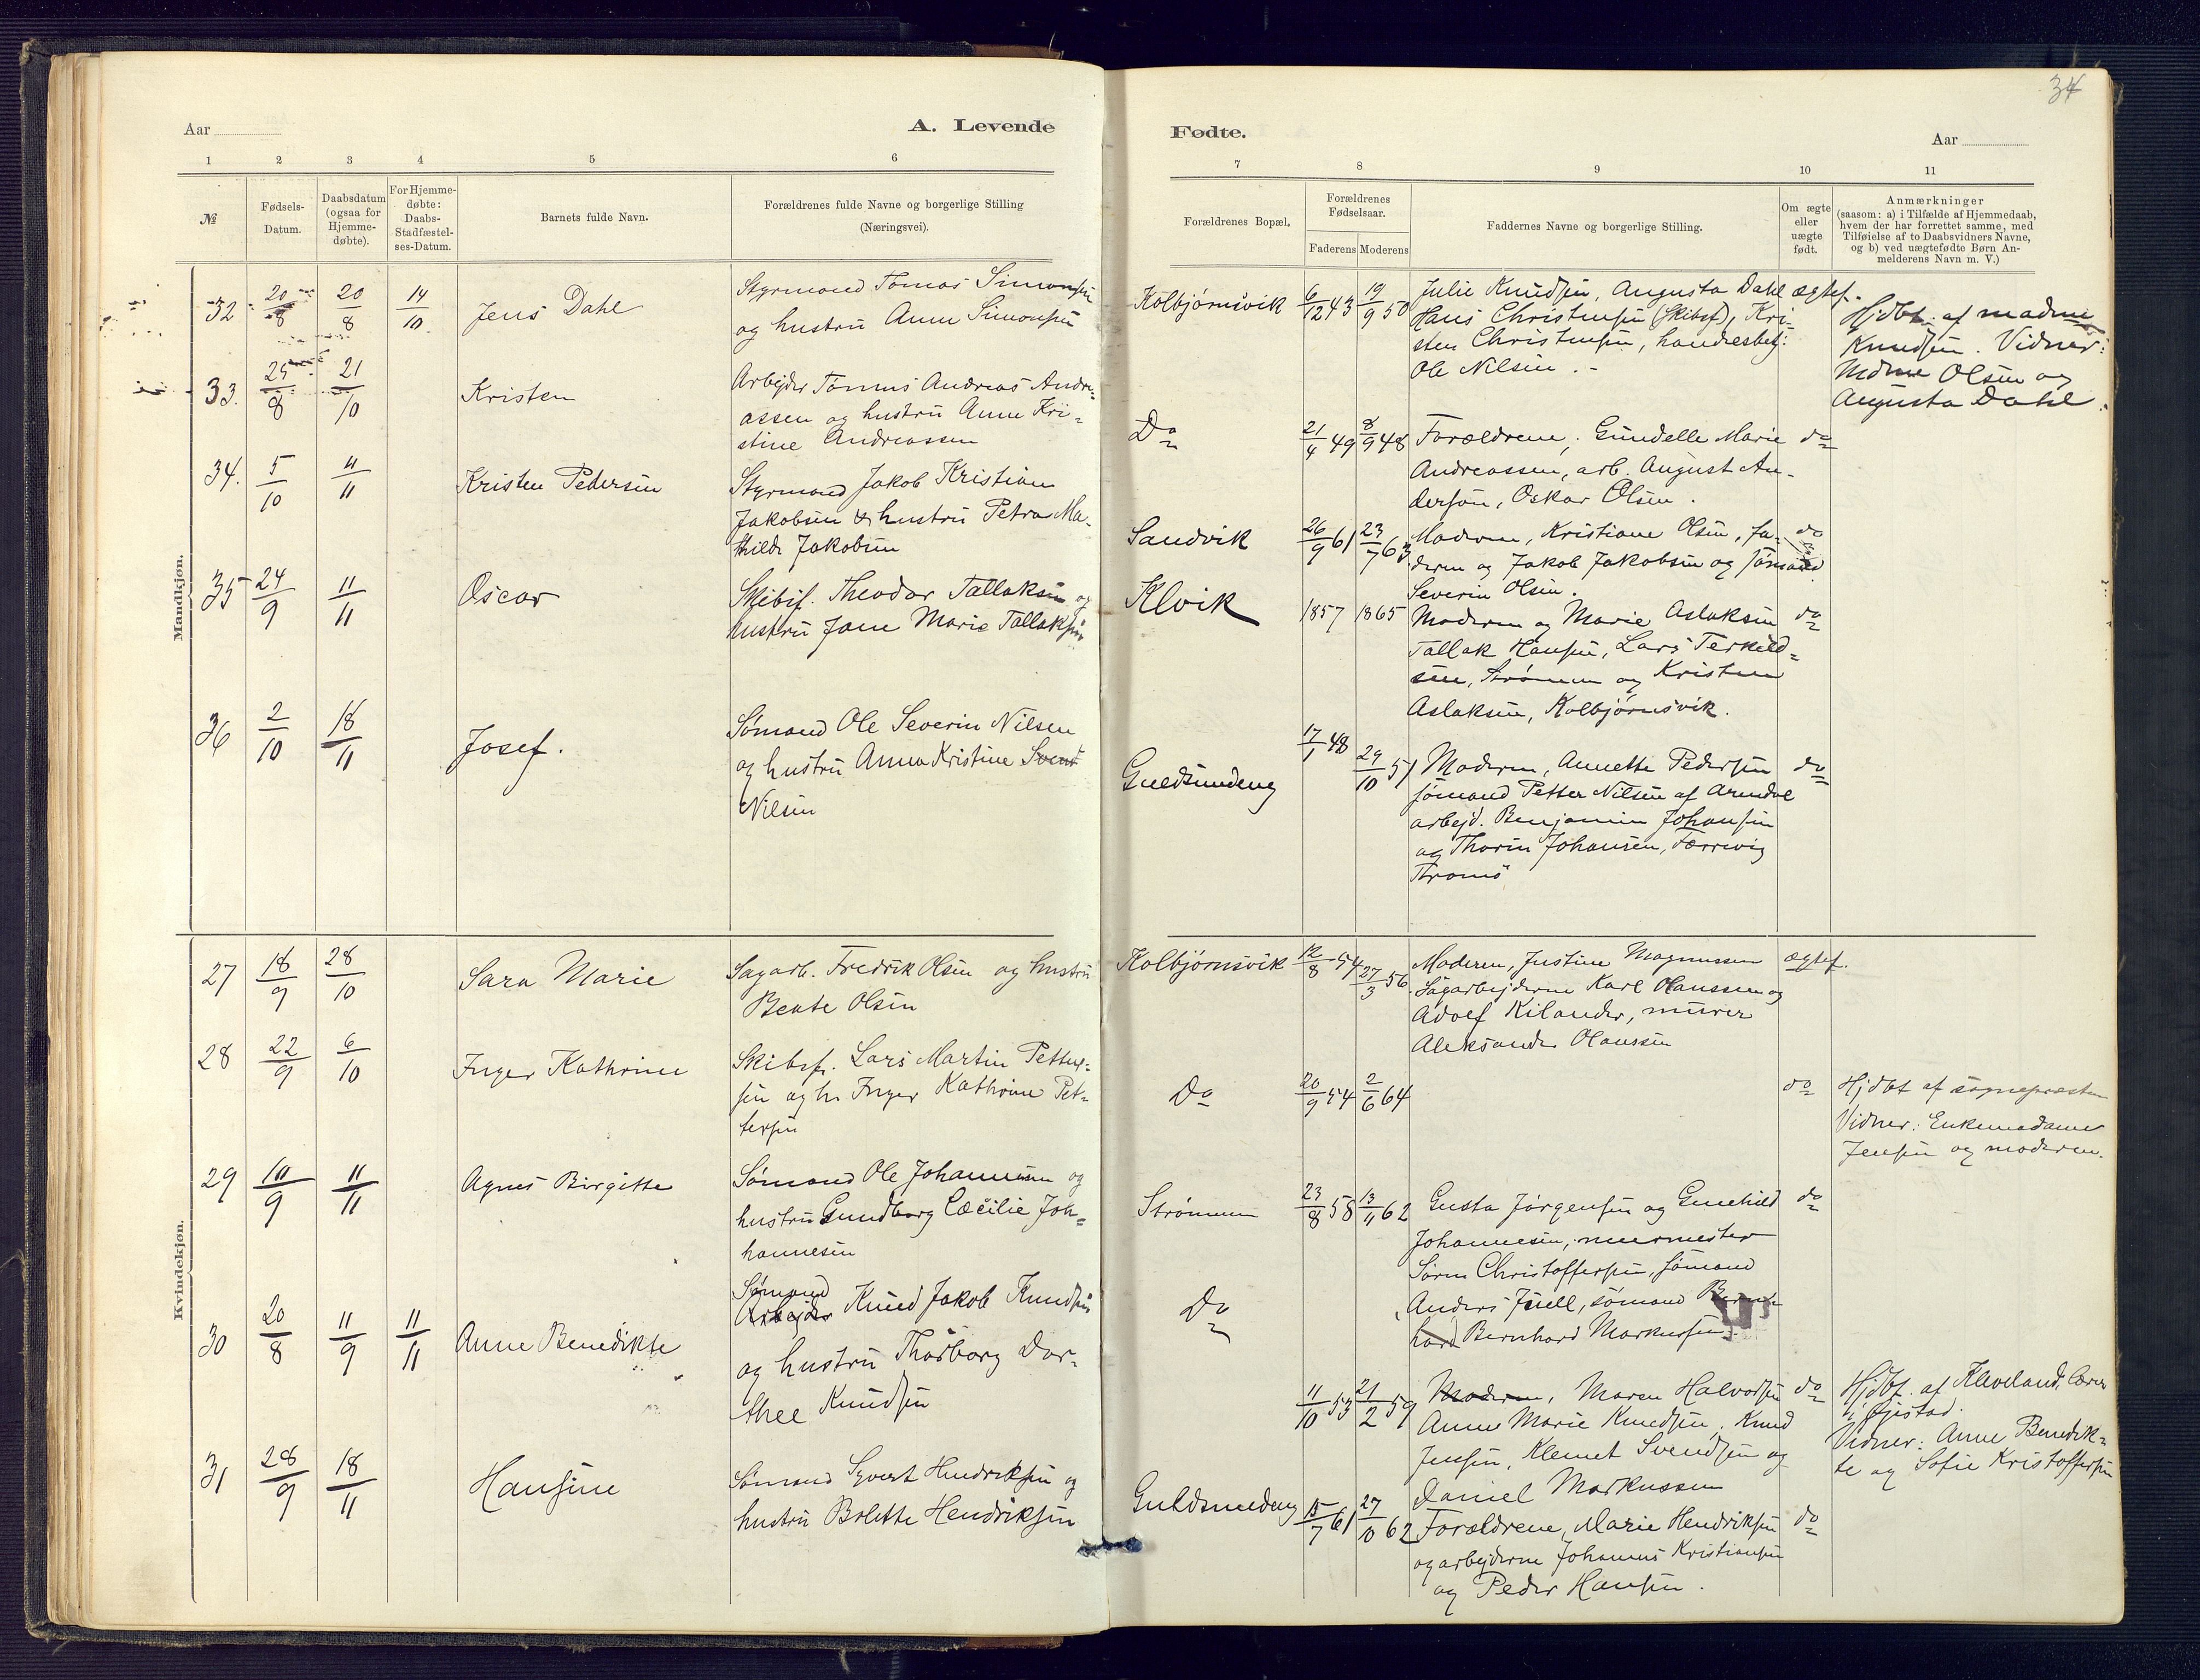 34
Aar
A. Levende
Fødte.
Aar
1 2 3 4 5 6
7 8 9 10 11
№
Fødsels-
Datum.
Daabsdatum
(ogsaa for
Hjemme-
døbte).
For Hjemme-
døbte:
Daabs-
Stadfæstel-
ses-Datum.
Barnets fulde Navn.
Forældrenes fulde Navne og borgerlige Stilling
(Næringsvei).
Forældrenes Bopæl.
Forældrenes
Fødselsaar.
Faderens Moderens
Faddernes Navne og borgerlige Stilling.
Om ægte
eller
uægte
født.
Anmærkninger
(saasom: a) i Tilfælde af Hjemmedaab,
hvem der har forrettet samme, med
Tilføielse af to Daabsvidners Navne,
og b) ved uægtefødte Børn An-
melderens Navn m. V.)
Mandkjøn.
32 20/8 20/8 14/10 Jens Dahl
Styrmand Tomas Simonsen
og hustru Anne Simonsen
Kolbjørnsvik 6/12 43 19/9 50
Julie Knudsen, Augusta Dahl
Hans Christensen (Skibsf), Kri-
sten Christensen, handesbetj:
Ole Nilsen.-
ægtef.
Hjdbt. af madme
Knudsen. Vidner:
Mdme Olsen og
Augusta Dahl.
33. 25/8 21/10 Kristen
Arbejder Tønnes Andreas Andre-
assen og hustru Anne Kri-
stine Andreassen
Do 21/4 49 8/9 48
Forældrene, Gundelle Marie
Andreassen, arb. August An-
derson, Oskar Olsen.
do
34. 5/10 11/11 Kristen Pedersen
Styrmand Jakob Kristian
Jakobsen & hustru Petra Ma-
thilde Jakobsen
Sandvik 26/9 61 23/7 63
Moderen, Kristiane Olsen, fa-
deren og Jakob Jakobsen og sømand
Severin Olsen.
do
35 24/9 11/11 Oscar
Skibsf. Theodor Tallaksen og
hustru Jane Marie Tallaksen
Klvik 1857 1865
Moderen og Marie Aslaksen
Tallak Hansen, Lars Terkild-
sen, Strømmen og Kristen
Aslaksen, Kolbjørnsvik.
do
36 2/10 18/11 Josef.
Sømand Ole Severin Nilsen
og hustru Anna Kristine
Nilsen
Guldsmedeng 17/1 48 29/10 51
Moderen, Annette Pedersen
sømand Petter Nilsen af Arendal
arbejd. Benjamin Johansen
og Thorin Johansen, Færvig
Tromø
do
Kvindekjøn.
27 18/9 28/10 Sara Marie
Sagarb. Fredrik Olsen og hustru
Beate Olsen
Kolbjørnsvik 12/8 54 27/3 56
Moderen, Justine Magnussen
Sagarbejderne Karl Olaussen og
Adolf Kilander, murer
Aleksander Olaussen
ægtef.
28 22/9 6/10 Inger Kathrine
Skibsf. Lars Martin Petter-
sen og h. Inger Kathrine Pet-
tersen
Do 20/9 54 2/6 64
do
Hjdbt af sognepræsten
Vidner: Enkemadame
Jensen og moderen.
29 10/9 11/11 Agnes Birgitte
Sømand Ole Johannesen og
hustru Gundborg Cæcilie Joh-
hannesen
Strømmen 23/8 58 13/11 62
Gusta Jørgensen og Gunhild
Johannesen, murmester
Søren Christoffersen, sømand
Anders Juell, sømand
hard Bernhard Markussen.
do
30 20/8 11/9 11/11 Anne Benedikte
Sømand
Arbejder Knud Jakob Knudsen
og hustru Thorborg Dor-
thee Knudsen
Do 11/10 53 21/2 59
Moderen, Maren Halvorsen
Anne Marie Knudsen, Knud
Jensen, Klemet Svendsen og
Daniel Markussen
do
Hjdbt. af Kleveland, lærer
i Øjestad.
Vidner: Anne Benedik-
te og Sofie Kristoffersen
31 28/9 18/11 Hansine
Sømand Syvert Hendriksen og
hustru Bolette Hendriksen
Guldsmedeng 15/7 61 27/10 62
Forældrene, Marie Hendriksen
og arbejderne Johannes Kristiansen
og Peder Hansen.
do